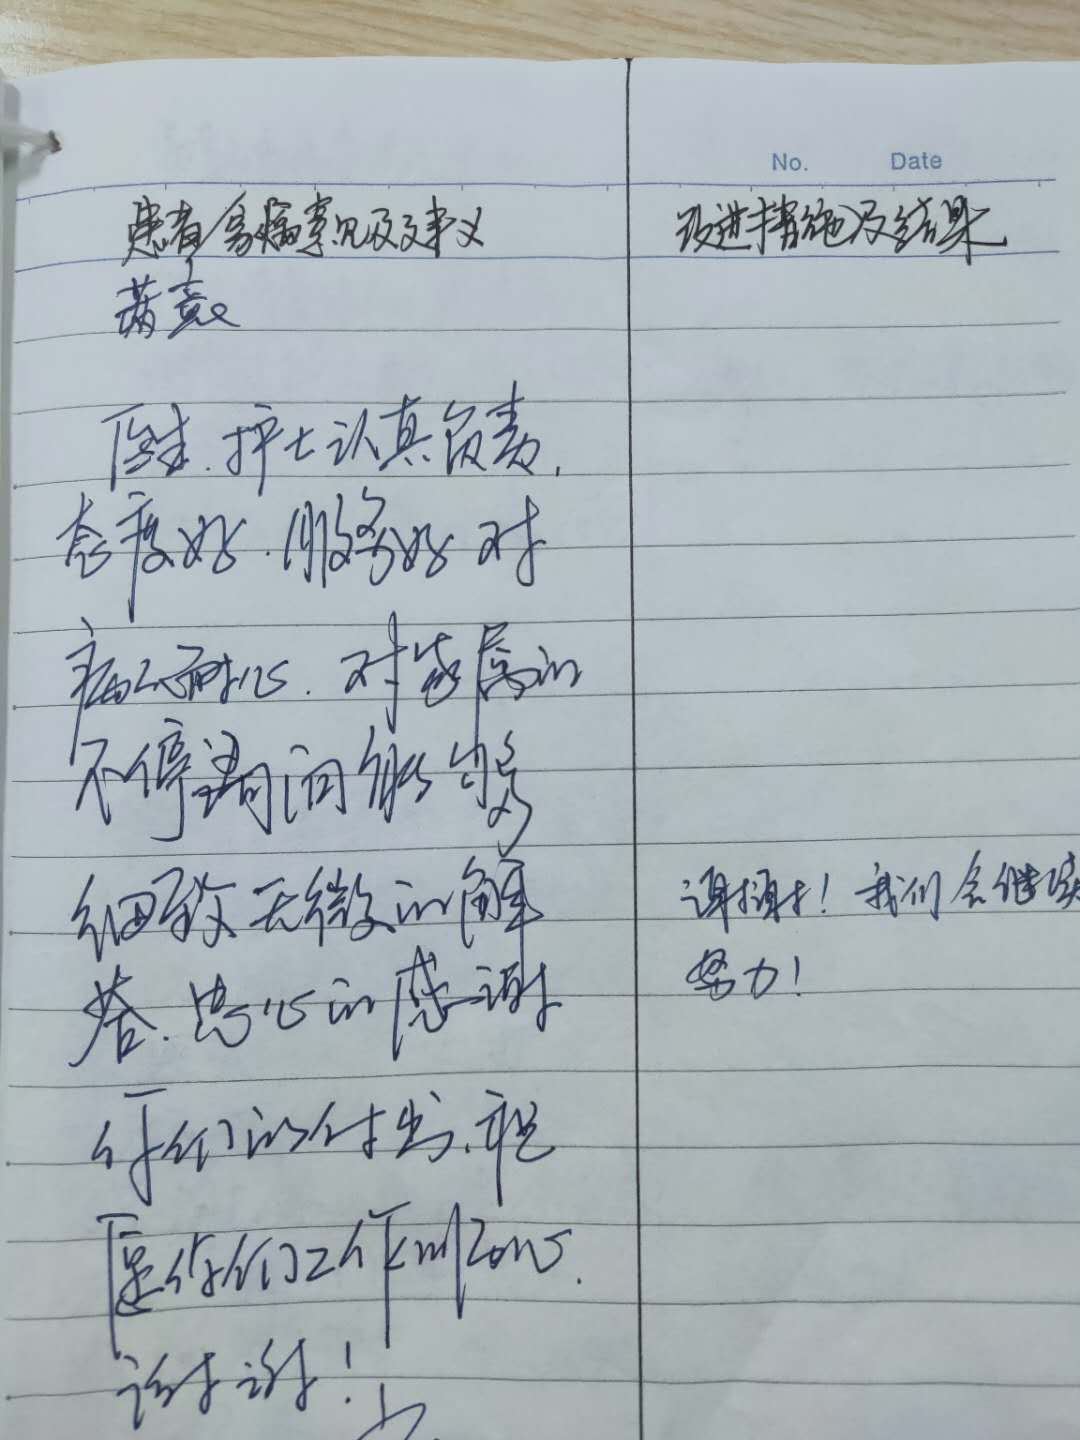 No. Date
患者家属意见及建议
改进措施及结果
满意
医生、护士认真负责,
态度好、服务好 对
病人耐心、对家属的
不停询问能够
细致无微的解
答、忠心的感谢
你们的付出、祝
愿你们工作顺心。
谢谢!
谢谢! 我们会继续
努力!